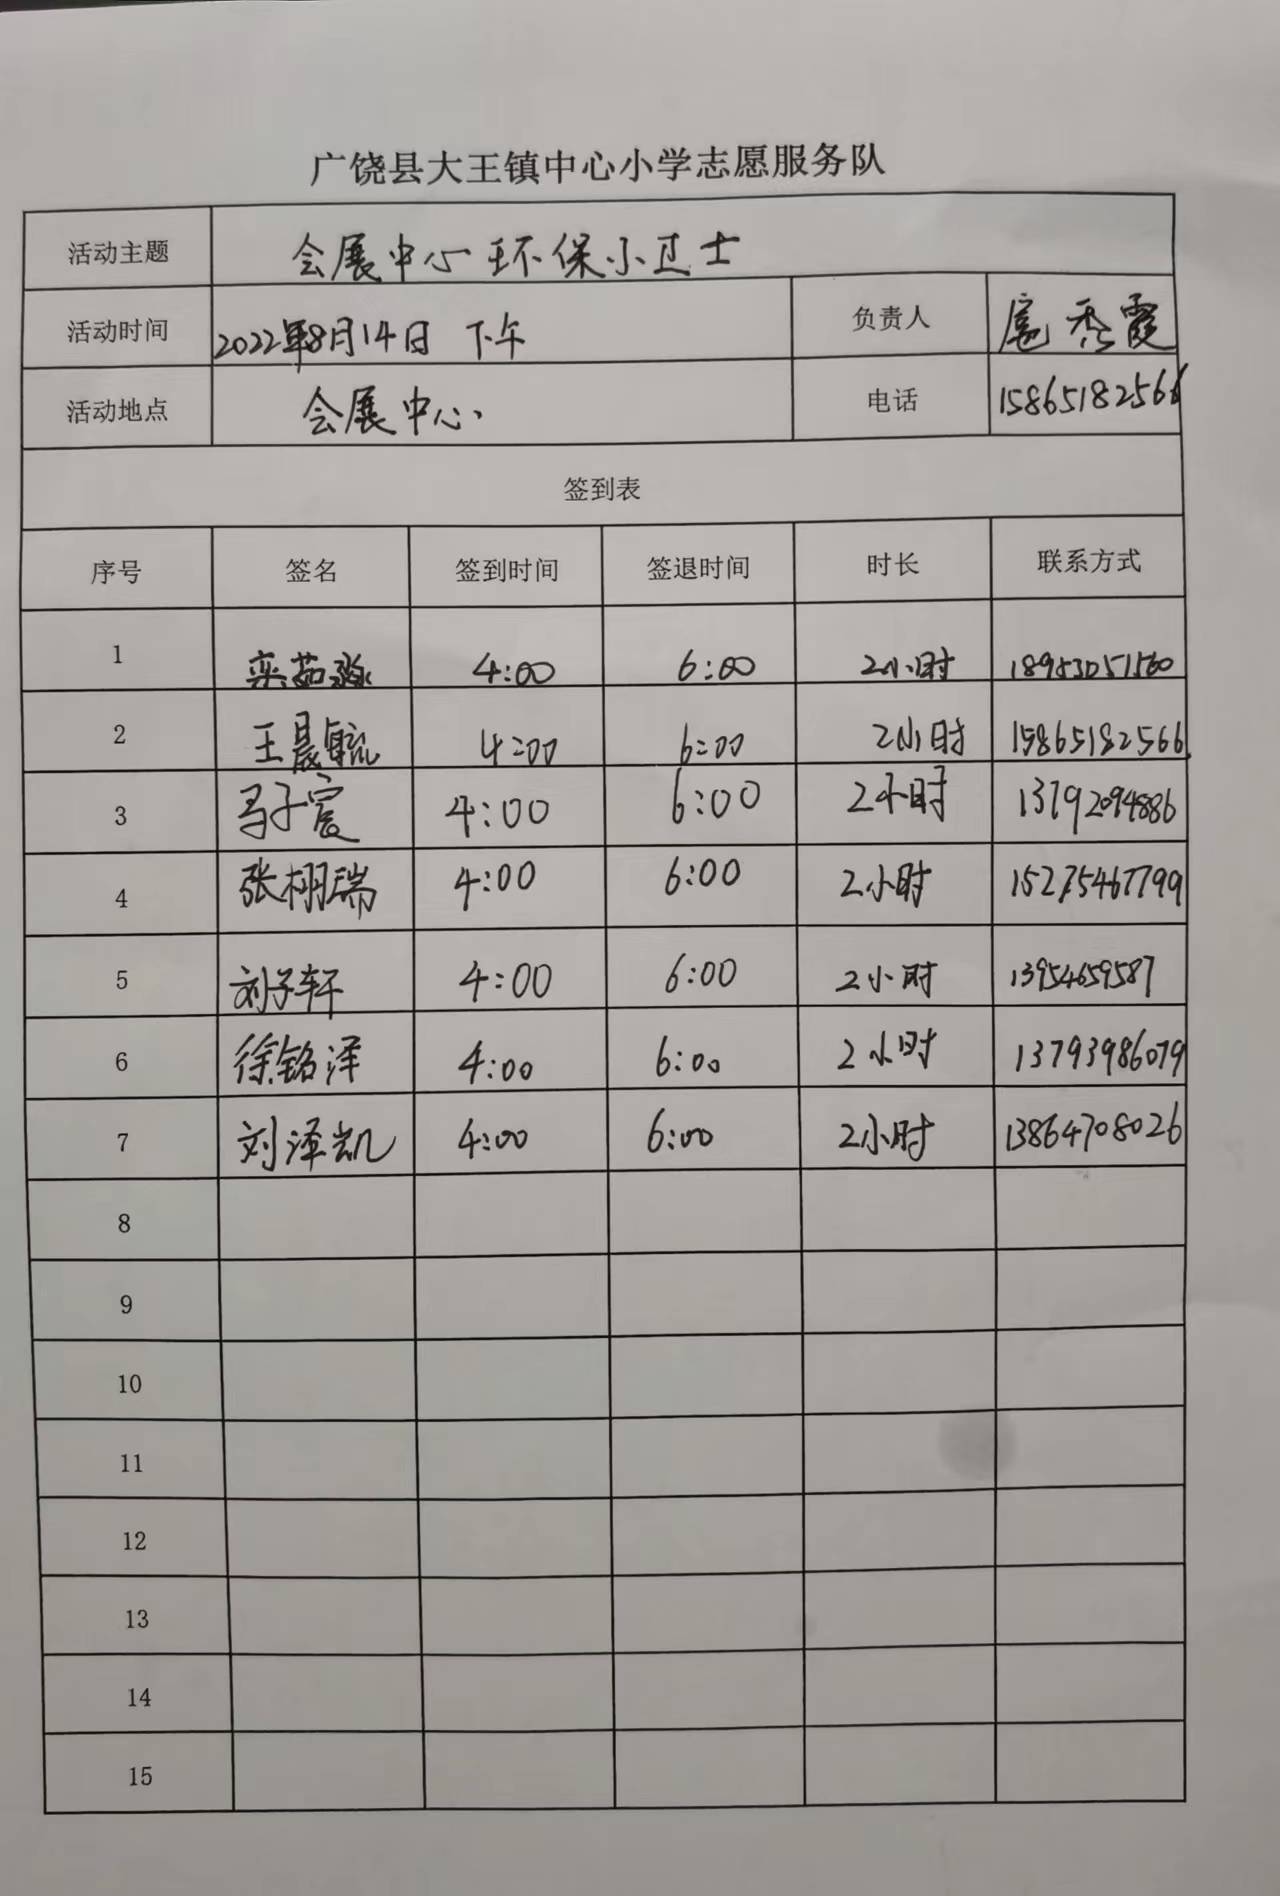 广饶县大王镇中心小学志愿服务队
活动主题 会展中心环保小卫士
活动时间 2022年8月14日 下午 负责人 扈秀霞
活动地点 会展中心 电话 15865182566
签到表
序号 签名 签到时间 签退时间 时长 联系方式
1 栾茹淼 4:00 6:00 2小时 18953051560
2 王晨毓 4:00 6:00 2小时 15865182566
3 马子宸 4:00 6:00 2小时 13792094886
4 张栩瑞 4:00 6:00 2小时 15275467799
5 刘子轩 4:00 6:00 2小时 13954659587
6 徐铭泽 4:00 6:00 2小时 13793986079
7 刘泽凯 4:00 6:00 2小时 13864708026
8
9
10
11
12
13
14
15